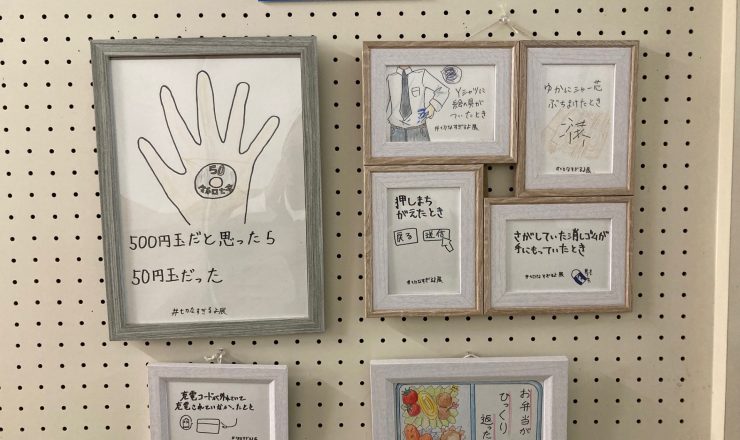 50
500円玉だと思ったら
50円玉だった
#セツなすぎるよ展
Yシャツに
絵の具が
ついたとき
#セツなすぎるよ展
ゆかにシャー芯
ぶちまけたとき
#セツなすぎるよ展
押しまち
がえたとき
戻る 送信
#セツなすぎるよ展
さがしていた消しゴムが
手にもっていたとき
#セツなすぎるよ展
充電コードが外れていて
充電されていなかったとき
お弁当が
ひっくり
返った